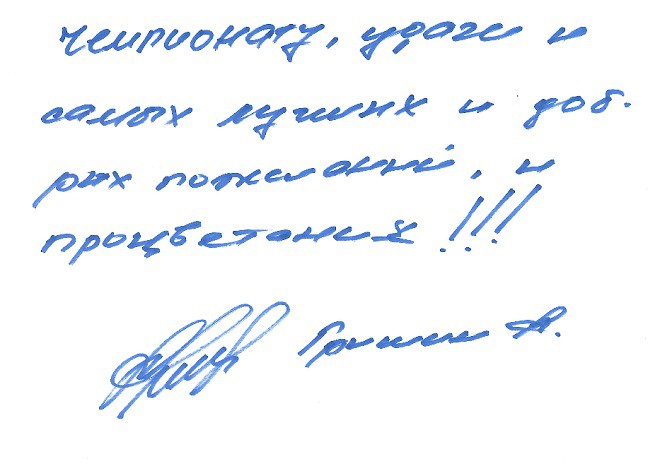 чемпионату, удачи и
самых лучших и доб-
рых пожеланий, и
процветания!!!
Гришин А.